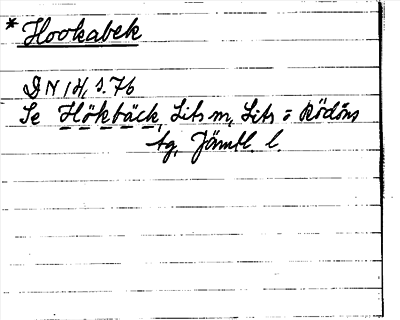 * Hookabek
DN 14, s. 76
Se Hökbäck, Lits m, Lits o Rödöns
tg, Jämtl. l.